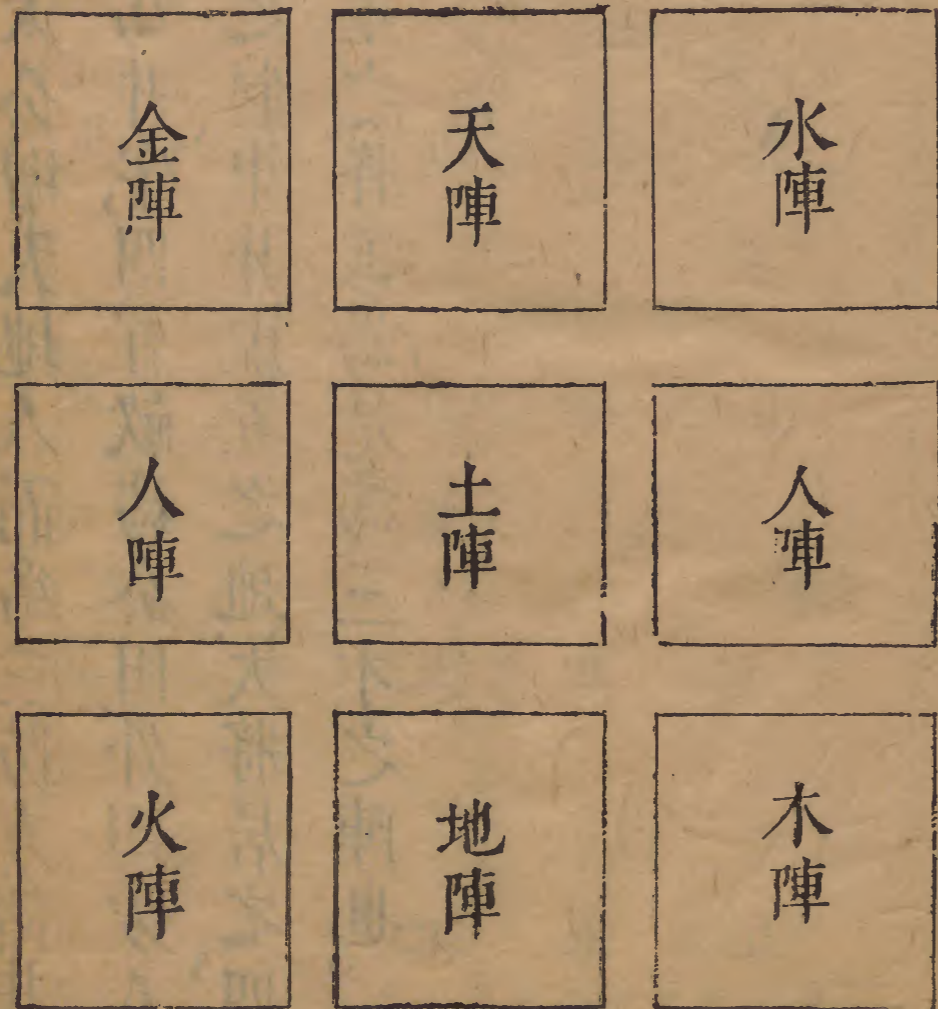 水陣
天陣
金陣
人陣
土陣
人陣
木陣
地陣
火陣